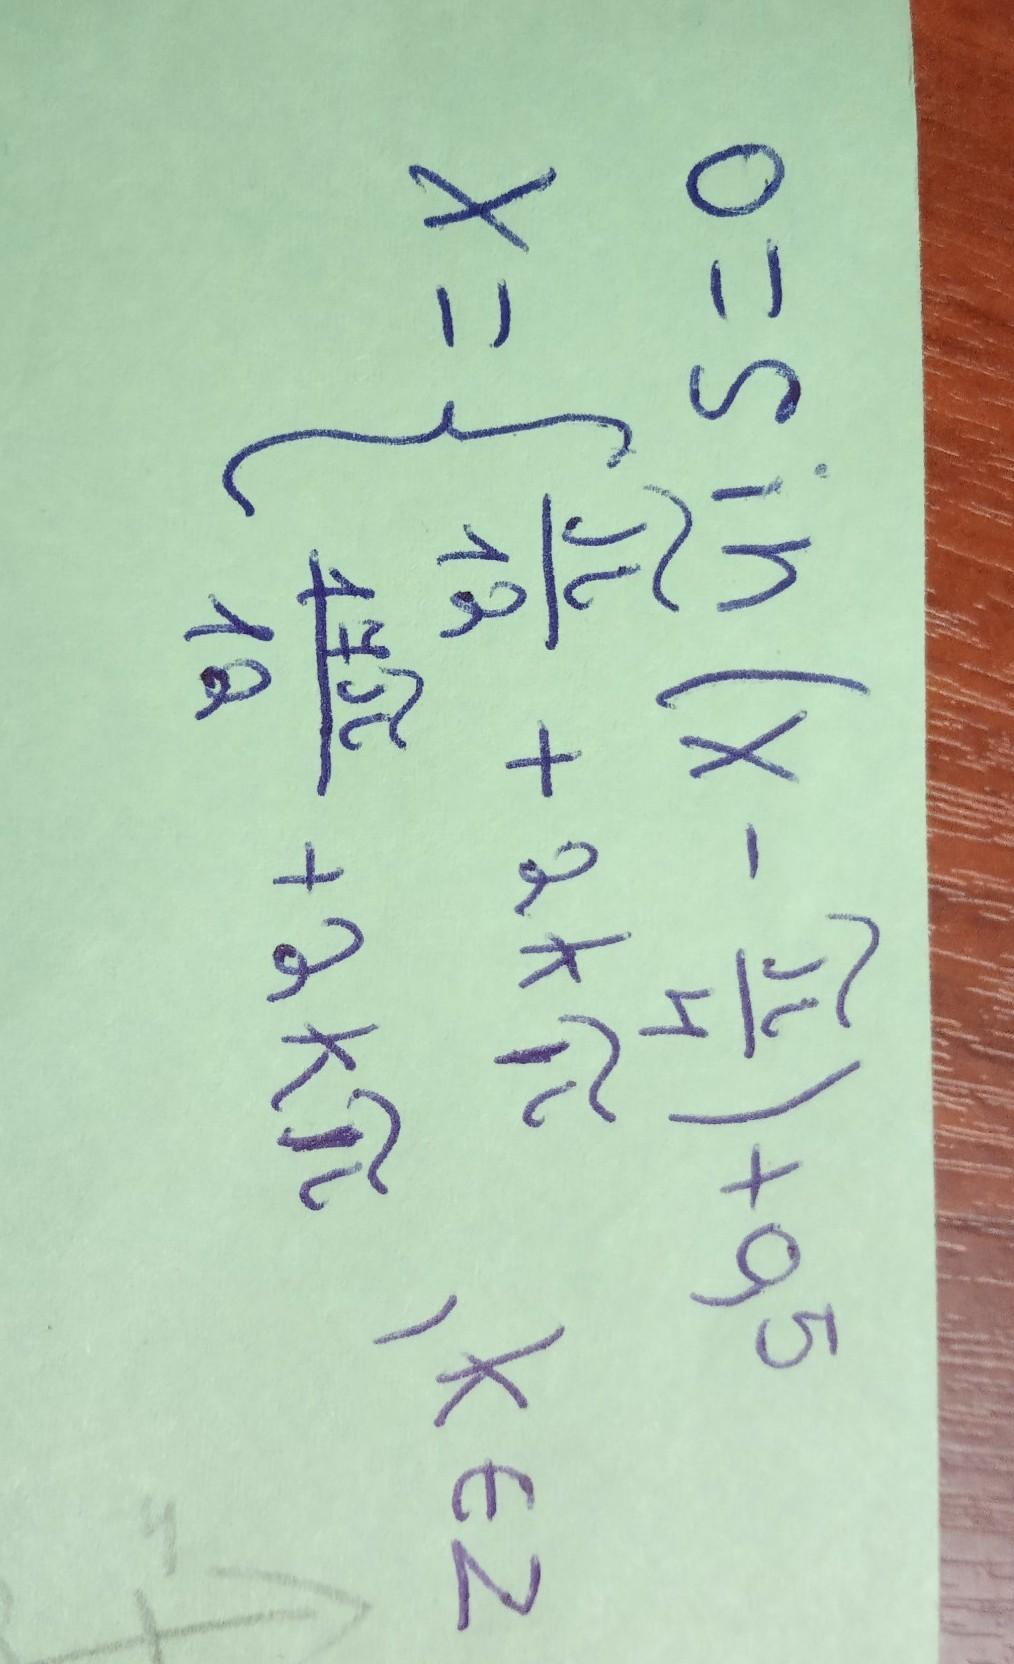 0 = sin(x - π/4) + 0,5
x = { π/12 + 2kπ
17π/12 + 2kπ , k ∈ Z
4